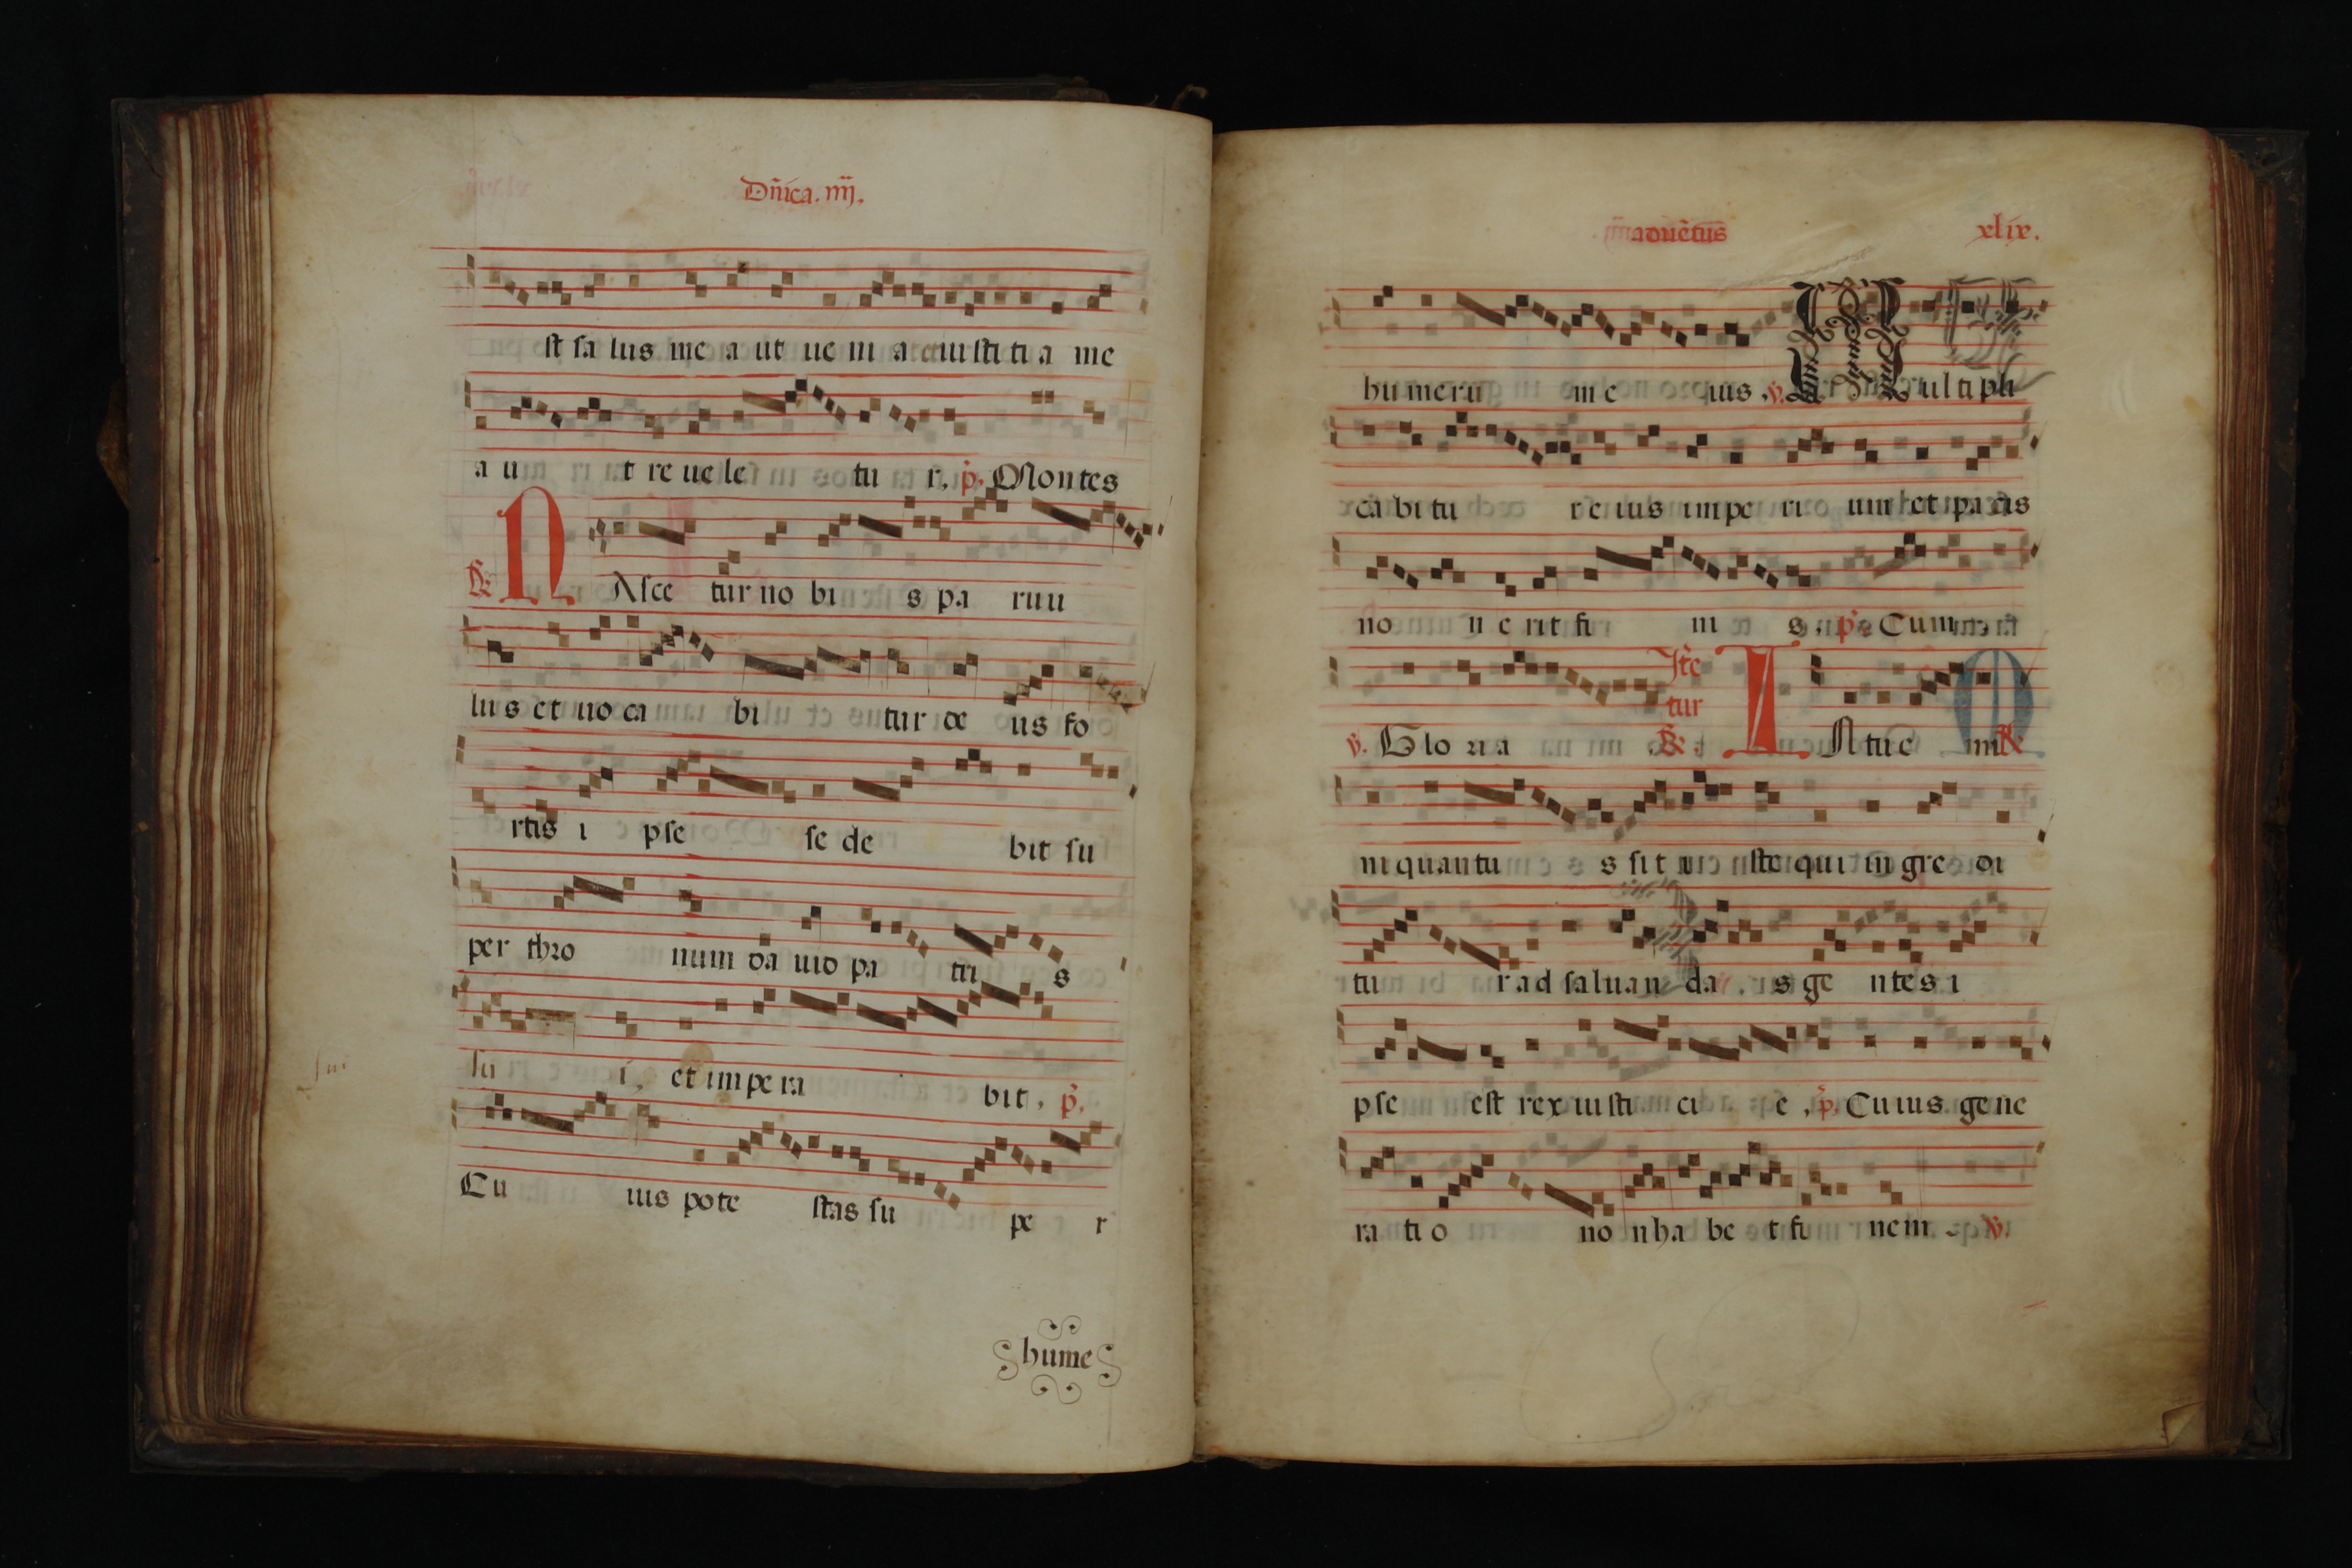 Dñica. iiij.
st sa lus me a ut ue ni a t et iusti ti a me
a u t re ue le tu r. p. Montes
R. N Asce tur no bi s pa ruu
lus et uo ca bi tur de us fo
rtis i pse se de bit su
per thro num da uid pa tri s
su i, et impe ra bit. p.
Cu ius pote stas su pe r
hume
aduẽtus
xlix.
hu meru m e ius. v. M ultipli
ca bi tu r e ius impe ri um et pa cis
no n e rit fi ni s. p. Cum
v. Glo ri a R. I Ntue mi
ni quantu s sit iste qui in gre di
tu r ad saluan da s ge ntes i
pse est rex iusti ci e. p. Cuius ge ne
ra ti o no n ha be t fi nem. v.